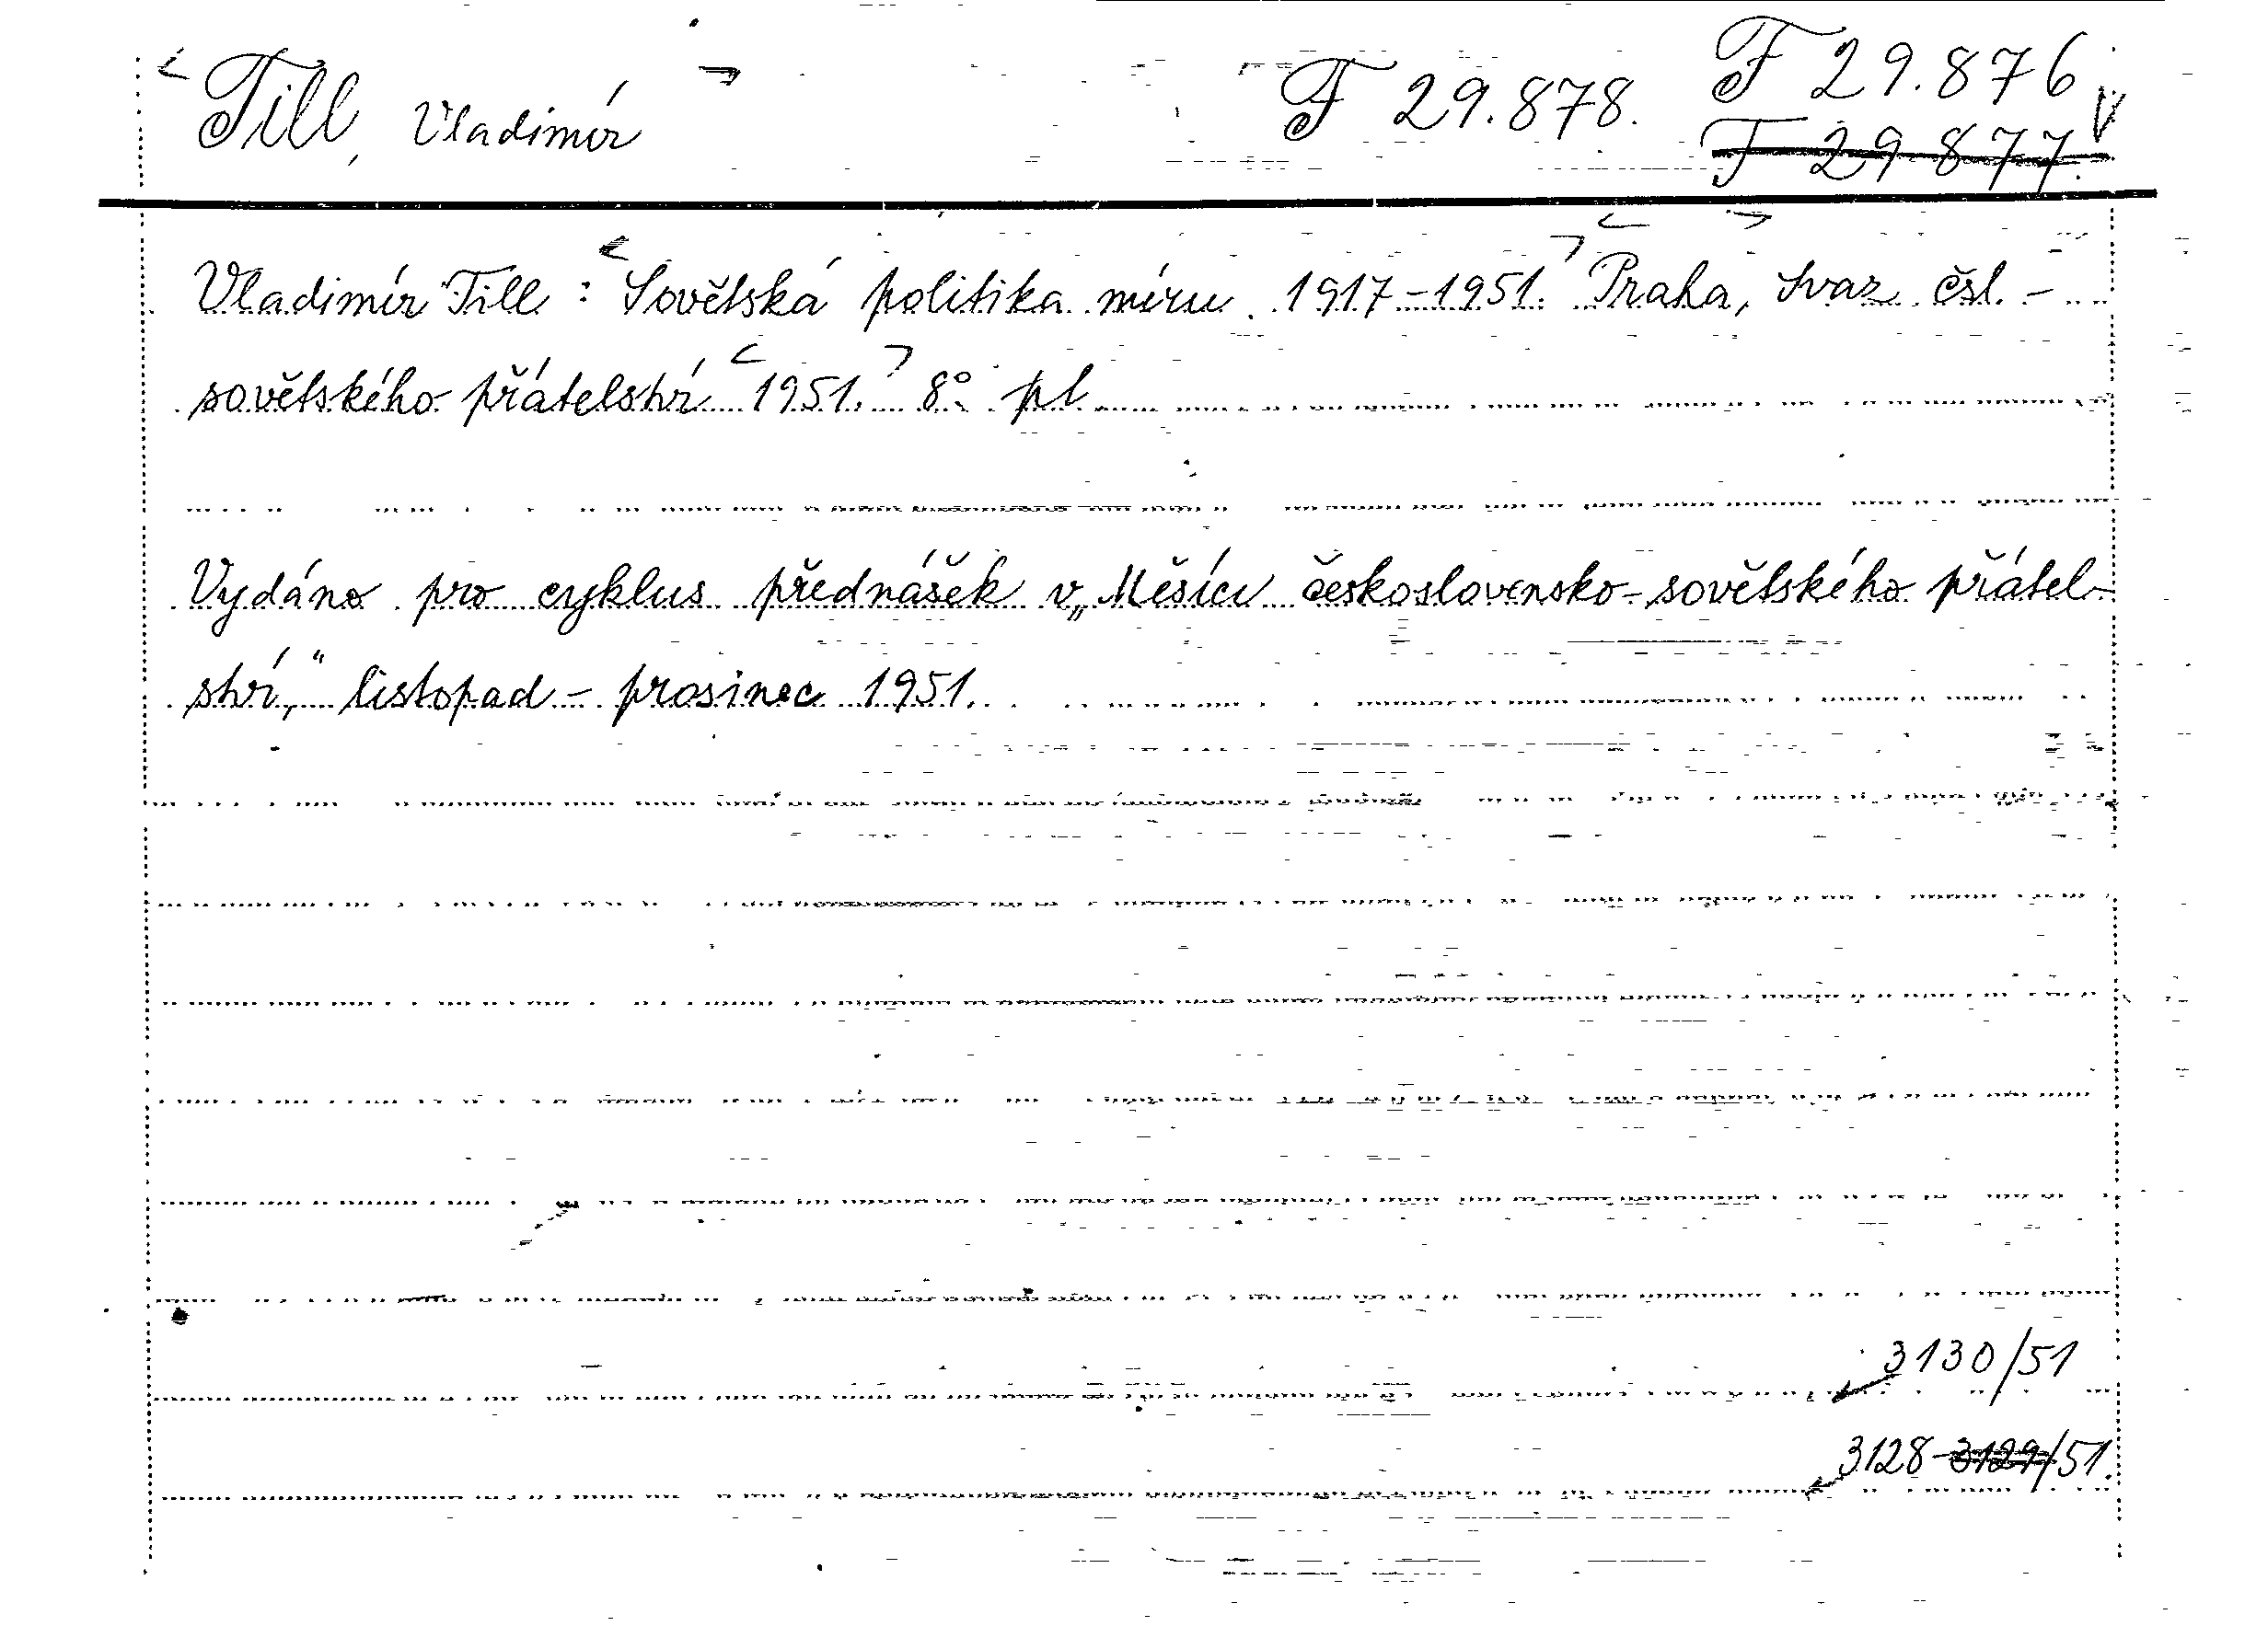 Till, Vladimír F 29.878. F 29.876
F 29.877.
Vladimír Till: Sovětská politika míru 1917-1951. Praha, Svaz čsl. -
sovětského přátelství 1951. 8° pl
Vydáno pro cyklus přednášek v „Měsíci československo-sovětského přátel-
ství," listopad - prosinec 1951.
3130/51
3128-3129/51.